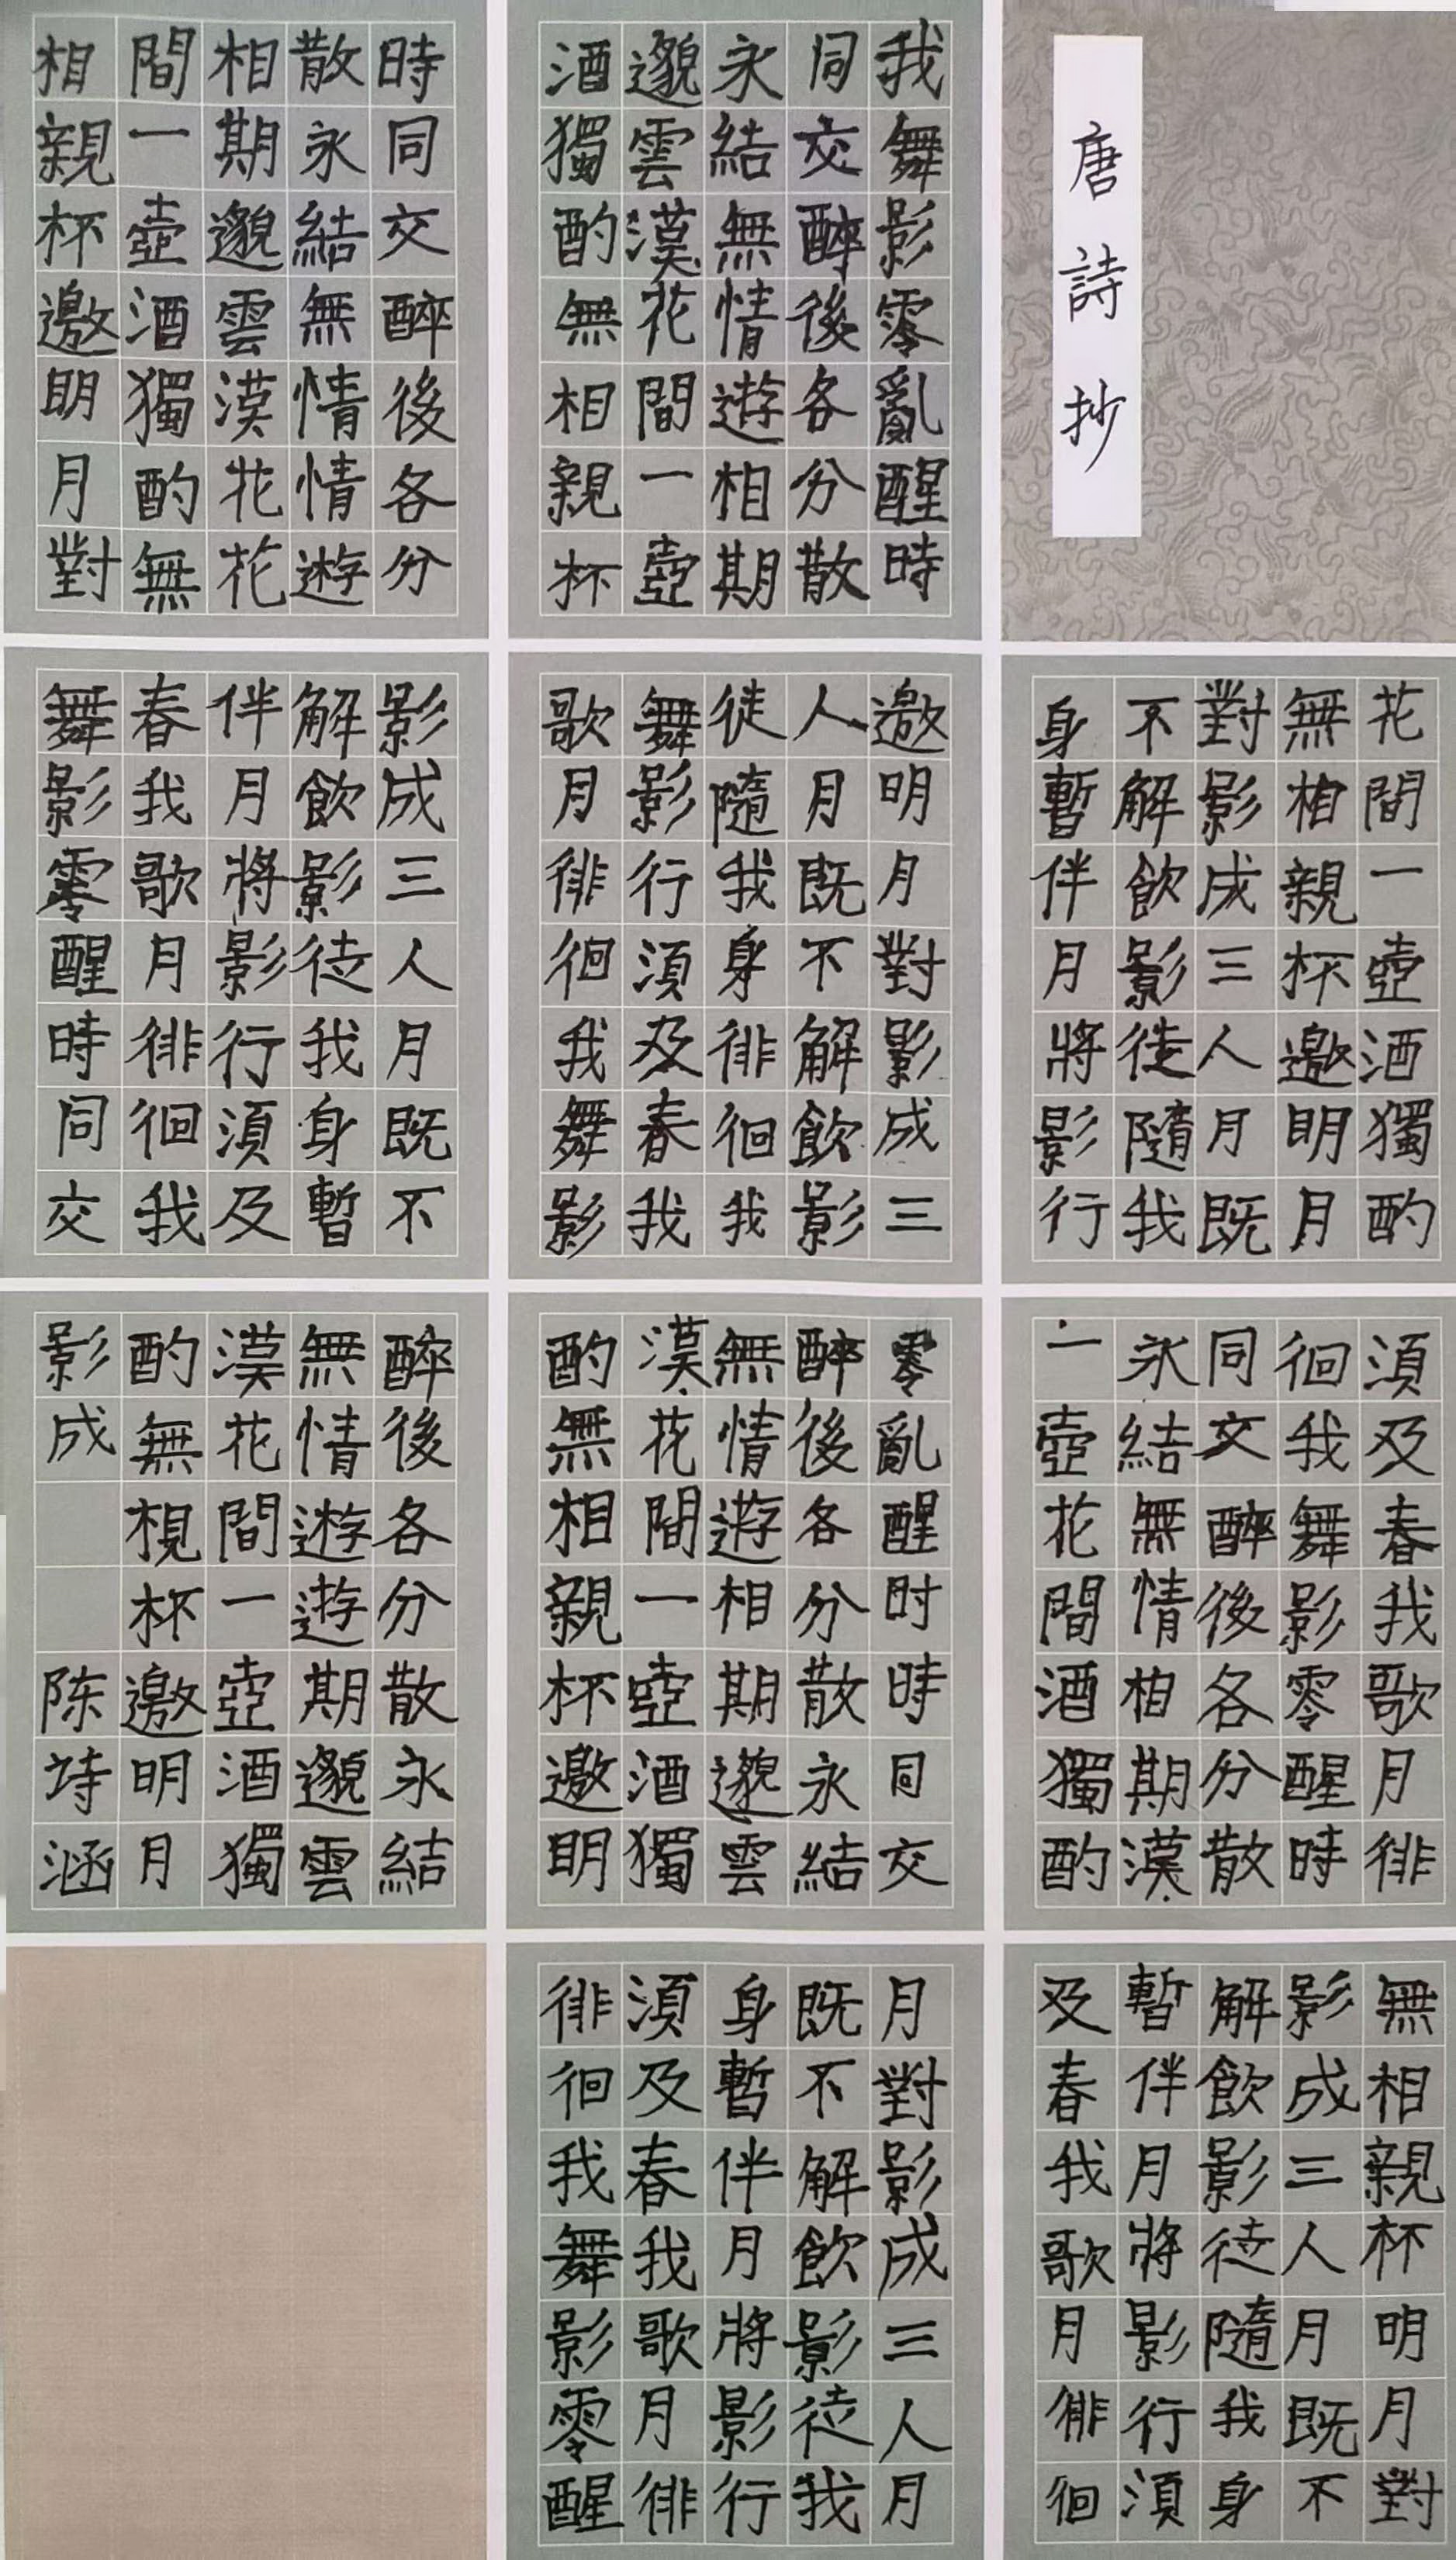 唐詩抄
我舞影零亂醒時
同交醉後各分散
永結無情遊相期
邈雲漢花間一壺
酒獨酌無相親杯
時同交醉後各分
散永結無情情遊
相期邈雲漢花花
間一壺酒獨酌無
相親杯邀明月對
花間一壺酒獨酌
無相親杯邀明月
對影成三人月既
不解飲影徒隨我
身暫伴月將影行
邀明月對影成三
人月既不解飲影
徒隨我身徘徊我
舞影行須及春我
歌月徘徊我舞影
影成三人月既不
解飲影徒我身暫
伴月將影行須及
春我歌月徘徊我
舞影零醒時同交
須及春我歌月徘
徊我舞影零醒時
同交醉後各分散
永結無情相期漢
一壺花間酒獨酌
零亂醒时時同交
醉後各分散永結
無情遊相期邈雲
漢花間一壺酒獨
酌無相親杯邀明
醉後各分散永結
無情遊遊期邈雲
漢花間一壺酒獨
酌無梘杯邀明月
影成
陈诗涵
無相親杯明月對
影成三人月既不
解飲影徒隨我身
暫伴月將影行須
及春我歌月徘徊
月對影成三人月
既不解飲影徒我
身暫伴月將影行
須及春我歌月徘
徘徊我舞影零醒